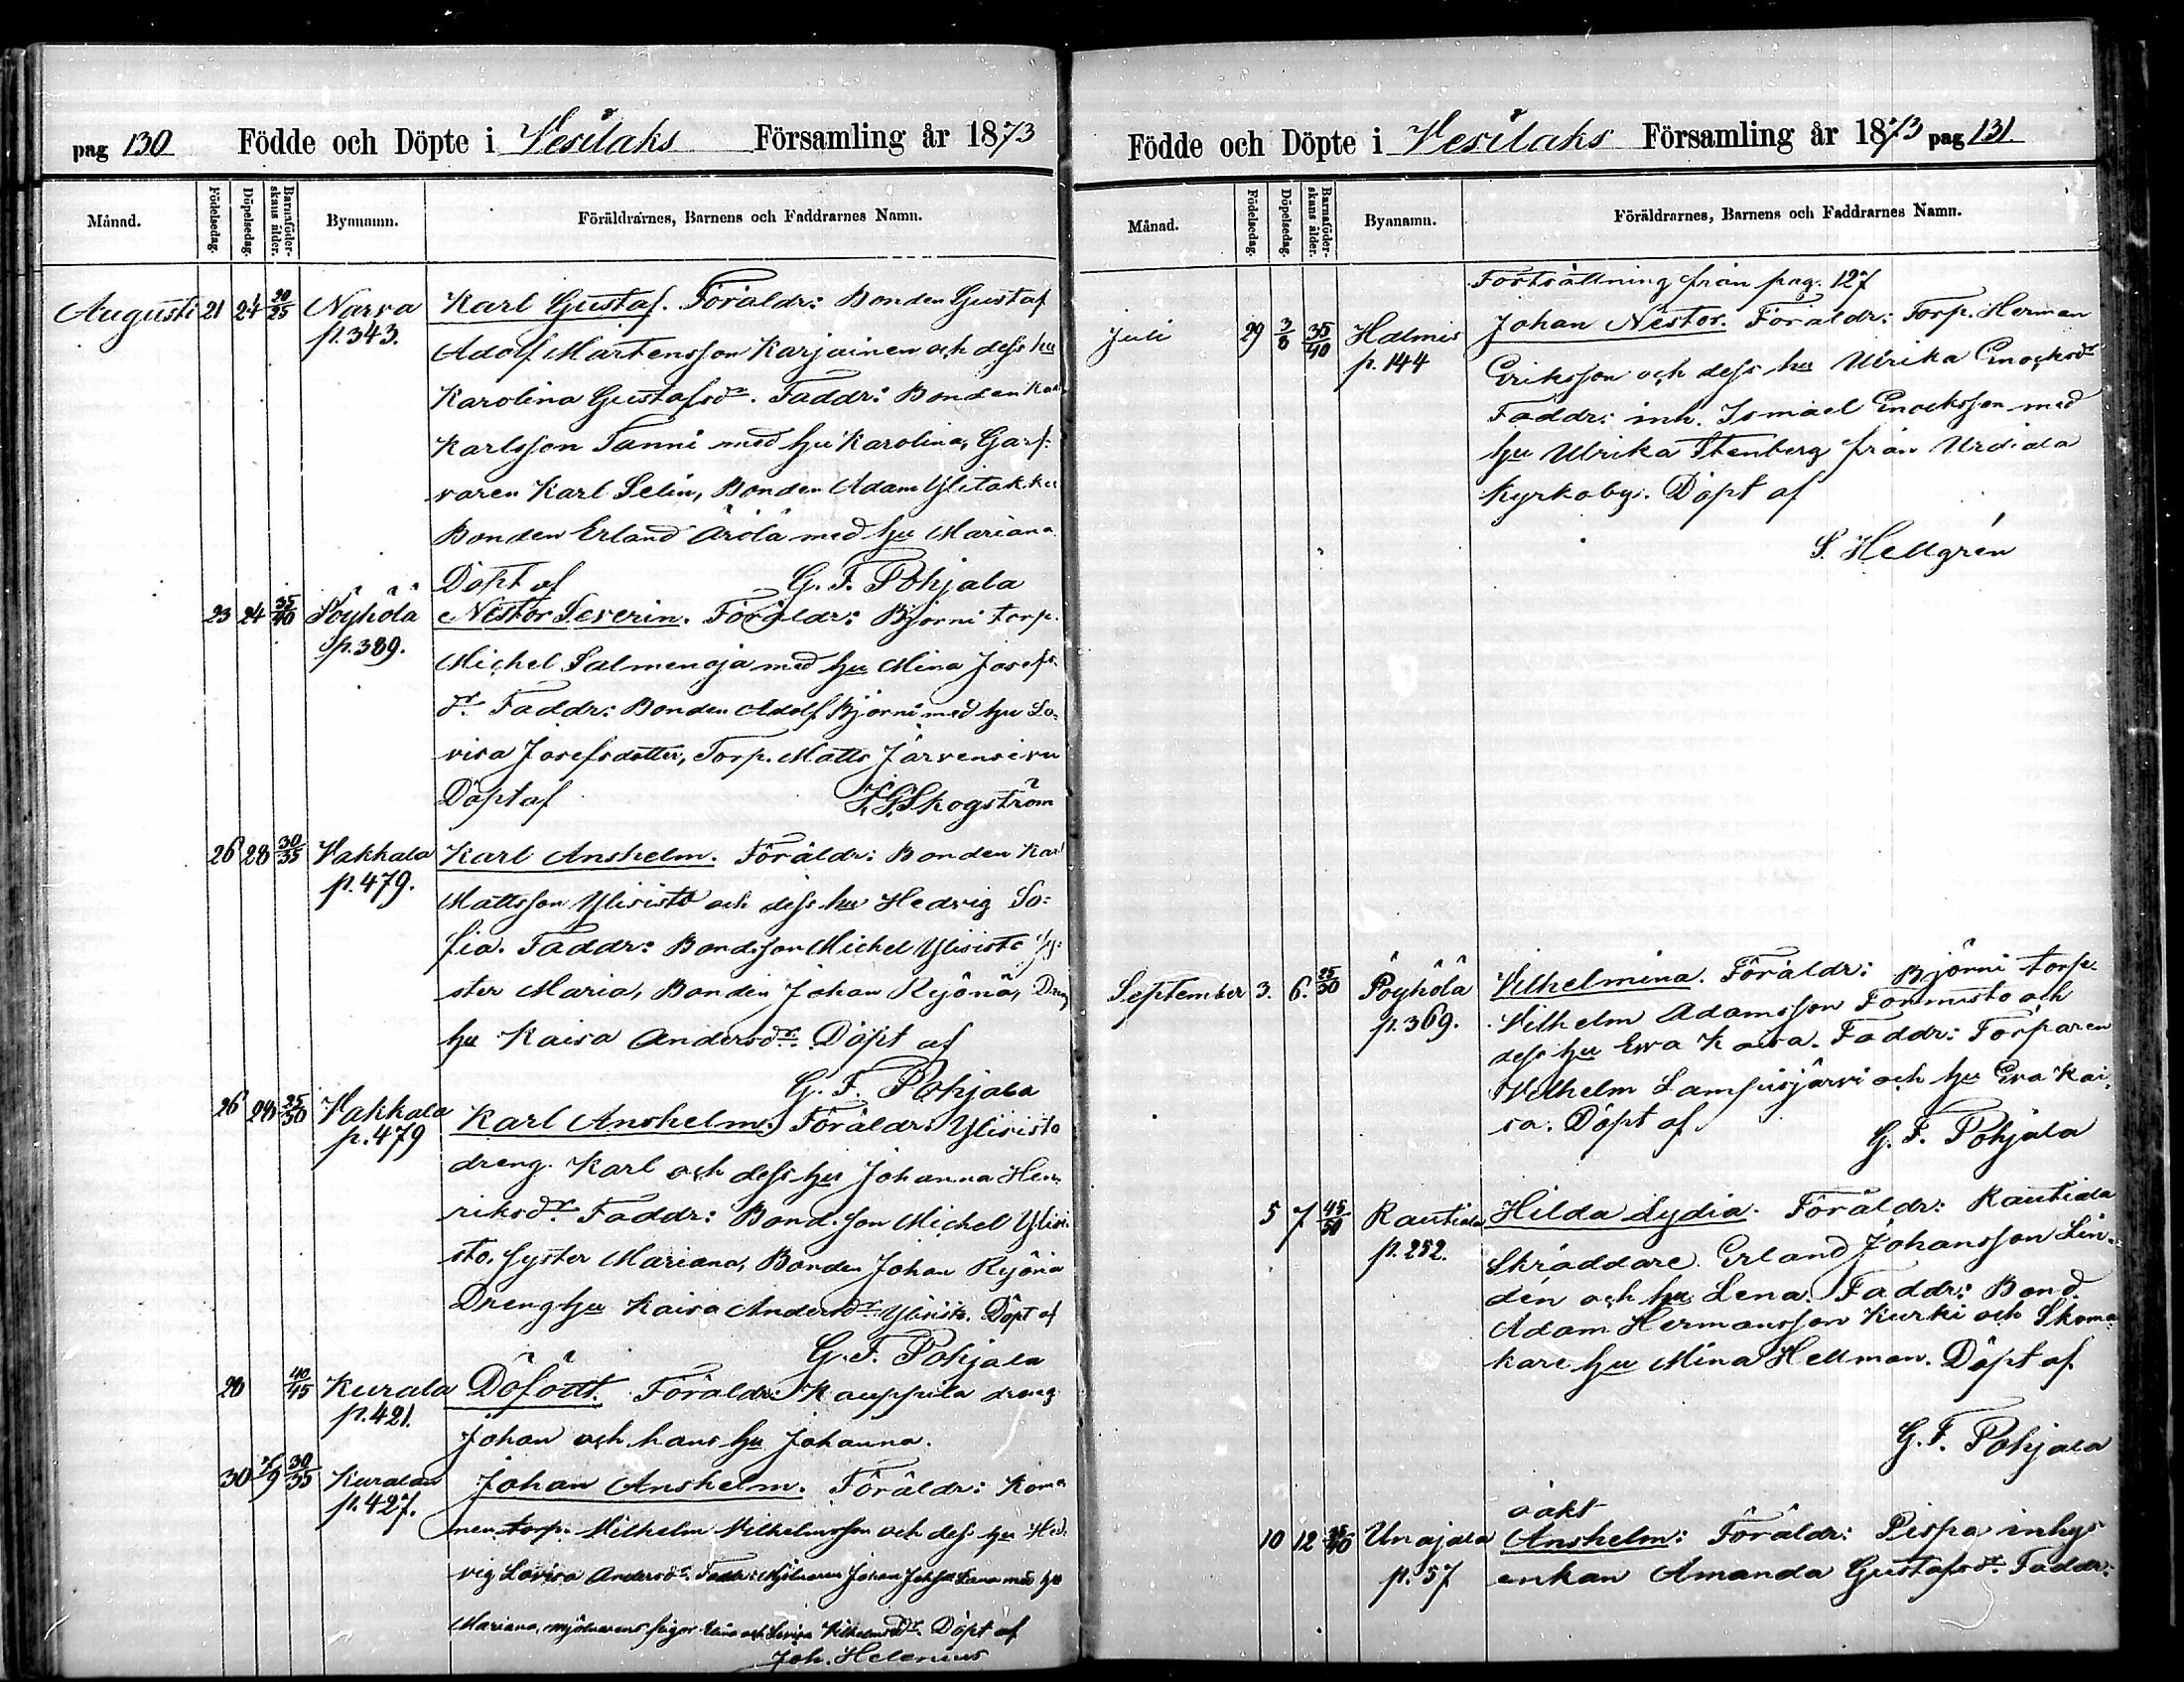 pag 130 Födde och Döpte i Vesilaks Församling år 1873
Månad. Födelsedag. Döpelsedag. Barnaföderskans ålder. Bynamn. Föräldrarnes, Barnens och Faddrarnes Namn.
Augusti 21 24 20/25 Narva Karl Gustaf. Föräldr: Bonden Gustaf
p.343. Adolf Mårtensson Karjainen och dess hu
Karolina Gustafsdr. Faddr: Bonden Karl
Karlsson Tanni med hu Karolina, Garf-
varen Karl Selin, Bonden Adam Ylitakku
Bonden Erland Ärölä med hu Mariana
Döpt af G. F. Pohjala
23 24 35/40 Pöyhölä Nestor Severin. Föräldr: Björni torp.
p.389. Michel Salmenoja med hu Mina Josefs
dr. Faddr: Bonden Adolf Björni med hu Lo-
visa Josefsdotter, Torp. Matts Järvensivu
Döpt af K.G.Skogström
26 28 30/35 Vakkala Karl Anshelm. Föräldr: Bonden Karl
p.479. Mattsson Ylisisto och dess hu Hedvig So-
fia. Faddr: Bondsson Michel Ylisisto sy-
ster Maria, Bonden Johan Ryönä, Dreng
hu Kaisa Andersdr. Döpt af
G. F. Pohjala
26 28 25/30 Vakkala Karl Anshelm. Föräldr: Ylisisto
p.479 dreng. Karl och dess hu Johanna Hen-
riksdr. Faddr: Bond.son Michel Ylisi-
sto, syster Mariana, Bonden Johan Ryönä
Dreng hu Kaisa Andersdr. Ylisisto. Döpt af
G. F. Pohjala
28 40/45 Kurala Döfödt. Föräldr: Kauppila dreng
p.421. Johan och hans hu Johanna.
30 7/9 30/35 Kurala Johan Anshelm. Föräldr: Komo
p.427. nen torp. Vilhelm Vilhelmsson och dess hu Hed-
vig Lovisa Andersdr. Faddr: Mjölnaren Johan med hu
Mariana, mjölnarens pigor och Lovisa Vilhelmsdr. Döpt af
Joh. Helenius
Födde och Döpte i Vesilaks Församling år 1873 pag 131.
Månad. Födelsedag. Döpelsedag. Barnaföderskans ålder. Bynamn. Föräldrarnes, Barnens och Faddrarnes Namn.
Fortsättning från pag. 127
Juli 29 3/8 35/40 Halmis Johan Nestor. Föräldr: Torp. Herman
p.144 Eriksson och dess hu Ulrika Enocksdr
Faddr: inh. Ismael Enocksson med
hu Ulrika Stenberg från Urdiala
Kyrkoby. Döpt af
S. Hellgrén
September 3. 6. 25/30 Pöyhölä Vilhelmina. Föräldr: Björni torp.
p.369. Vilhelm Adamsson Tommisto och
dess hu Eva Kaisa. Faddr: Torparen
Vilhelm Lampisjärvi och hu Eva Kai-
sa. Döpt af
G. F. Pohjala
5 7 45/50 Rautiala Hilda Lydia. Föräldr: Rautiala
p.252. Skräddare Erland Johansson Lin-
dén och hu Lena. Faddr: Bond.
Adam Hermansson Kurki och Skoma-
kare hu Mina Hellman. Döpt af
G. F. Pohjala
oäkt
10 12 35/40 Unajala Anshelm: Föräldr: Pispa inhys
p.57 enkan Amanda Gustafsdr. Faddr: